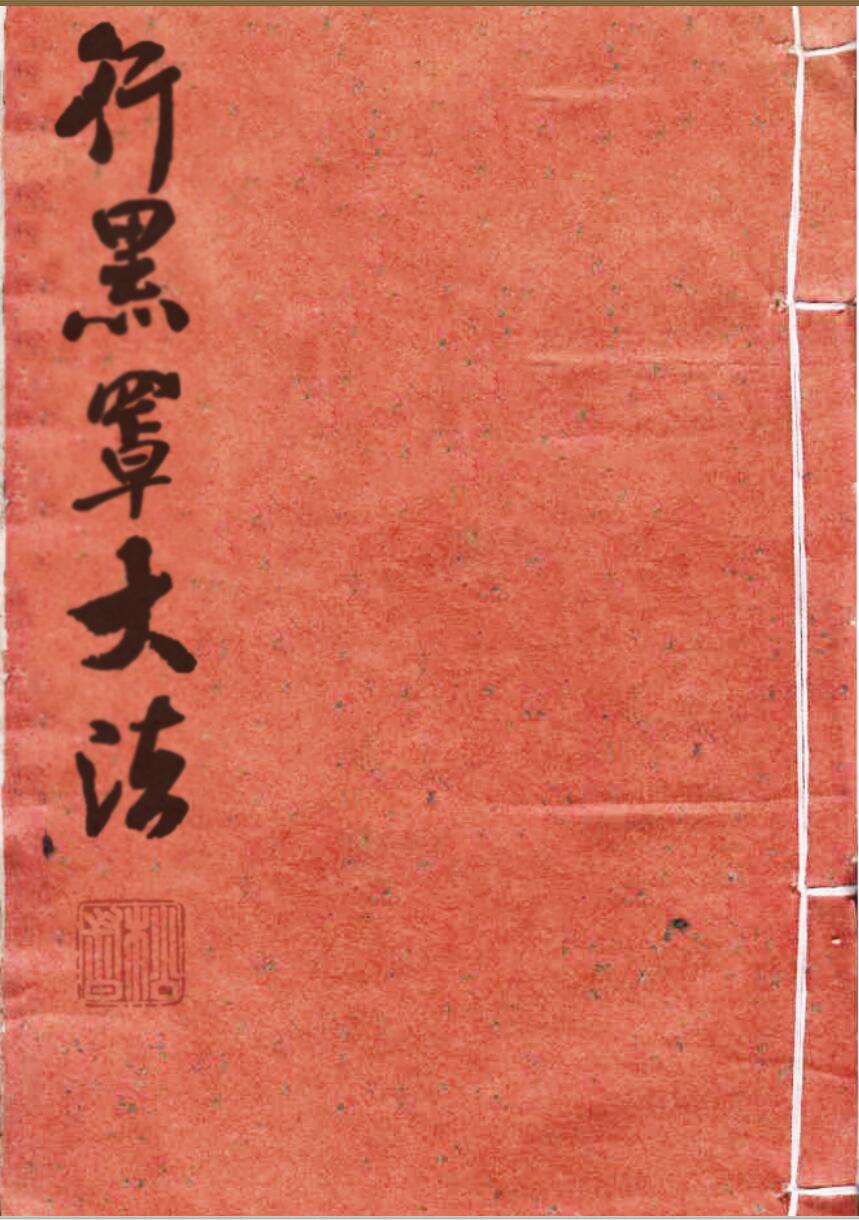 行黑罩大法